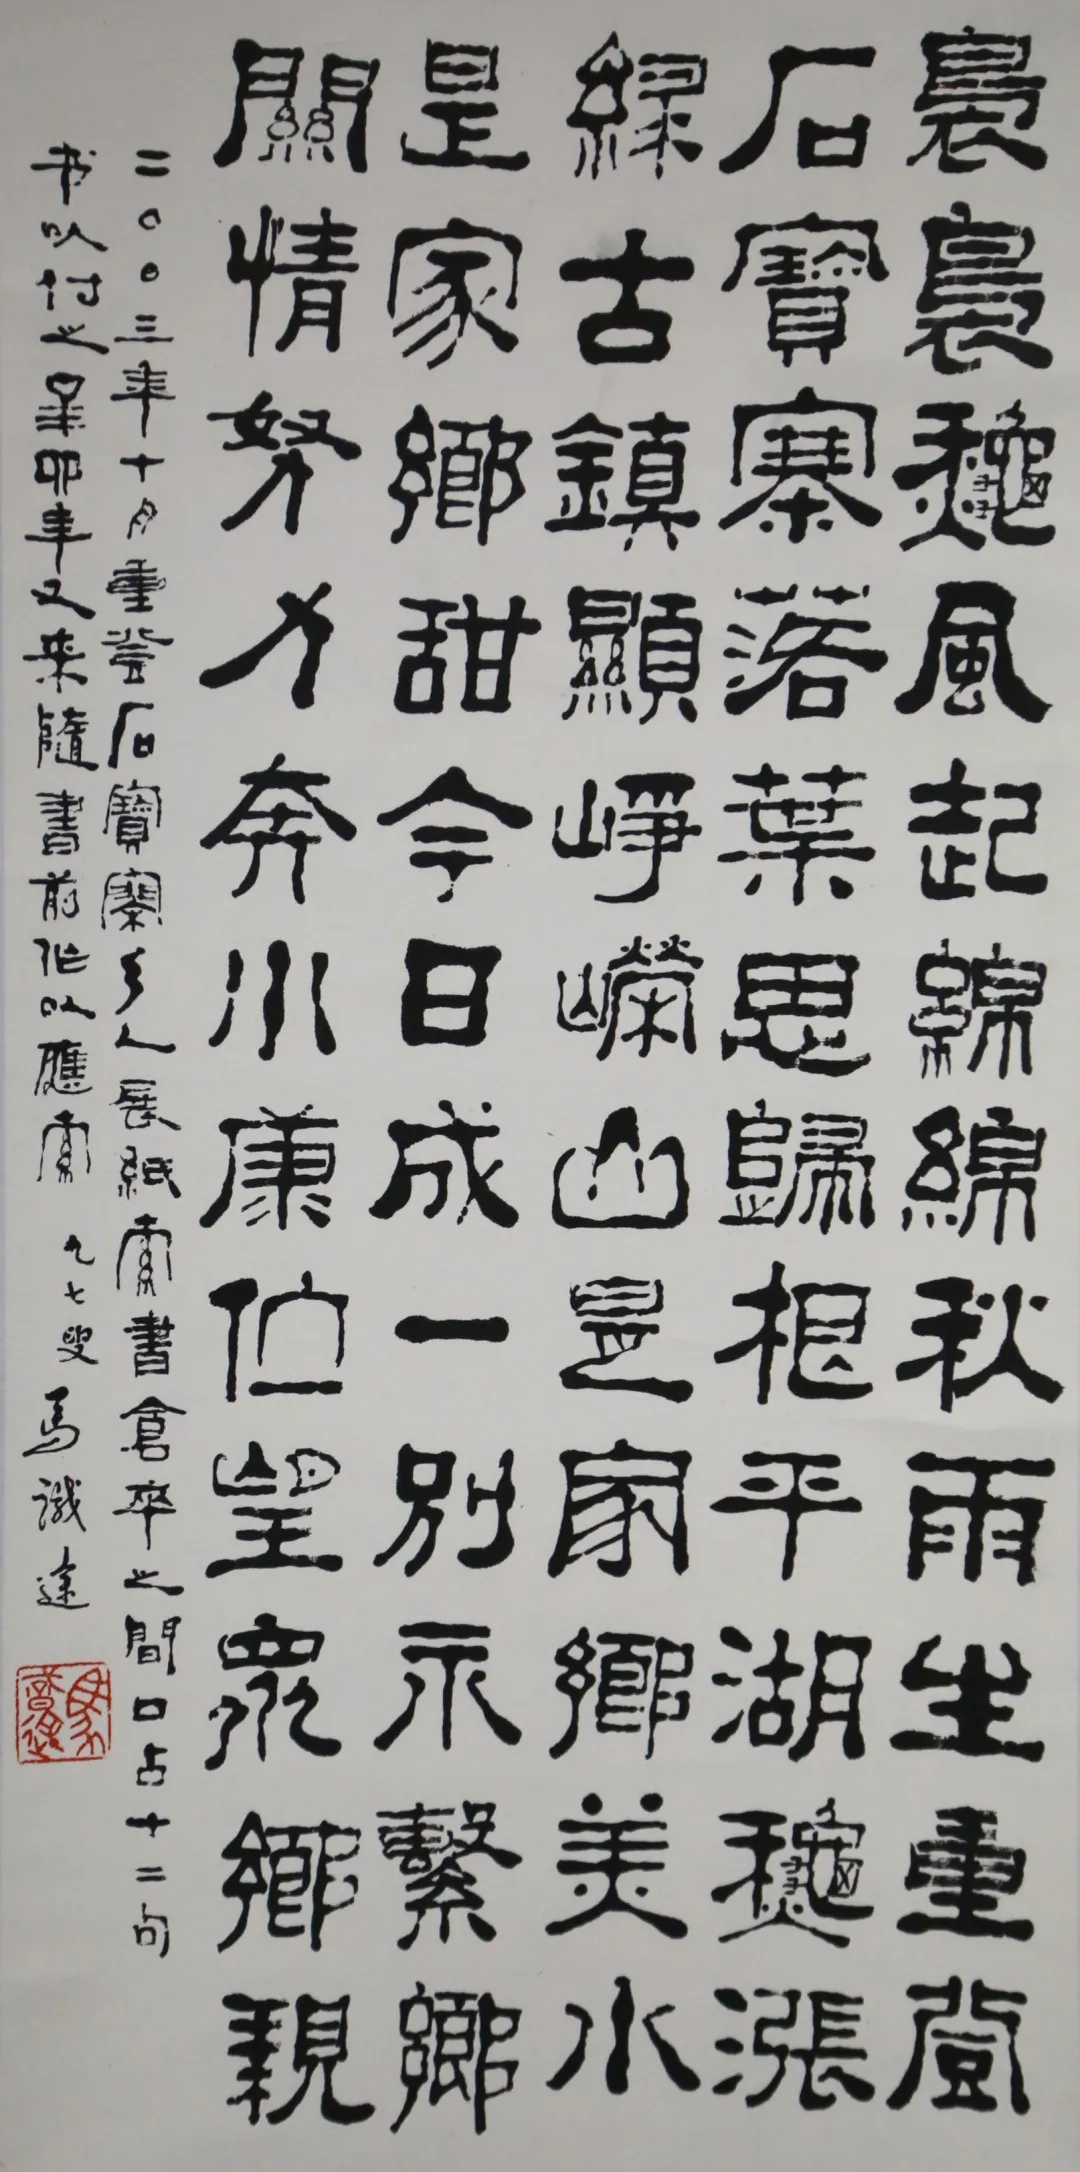 裊裊龝風起綿綿秋雨生重登
石寶寨落葉思歸根平湖龝漲
綠古鎮顯崢嶸山是家鄉美水
是家鄉甜今日成一別永繫鄉
關情努力奔小康佇望眾鄉親
二〇〇三年十月重登石寶寨乡人展紙索書倉卒之間口占十二句
书以付之辛卯年又来隨書前作以應索 九七叟 馬識途